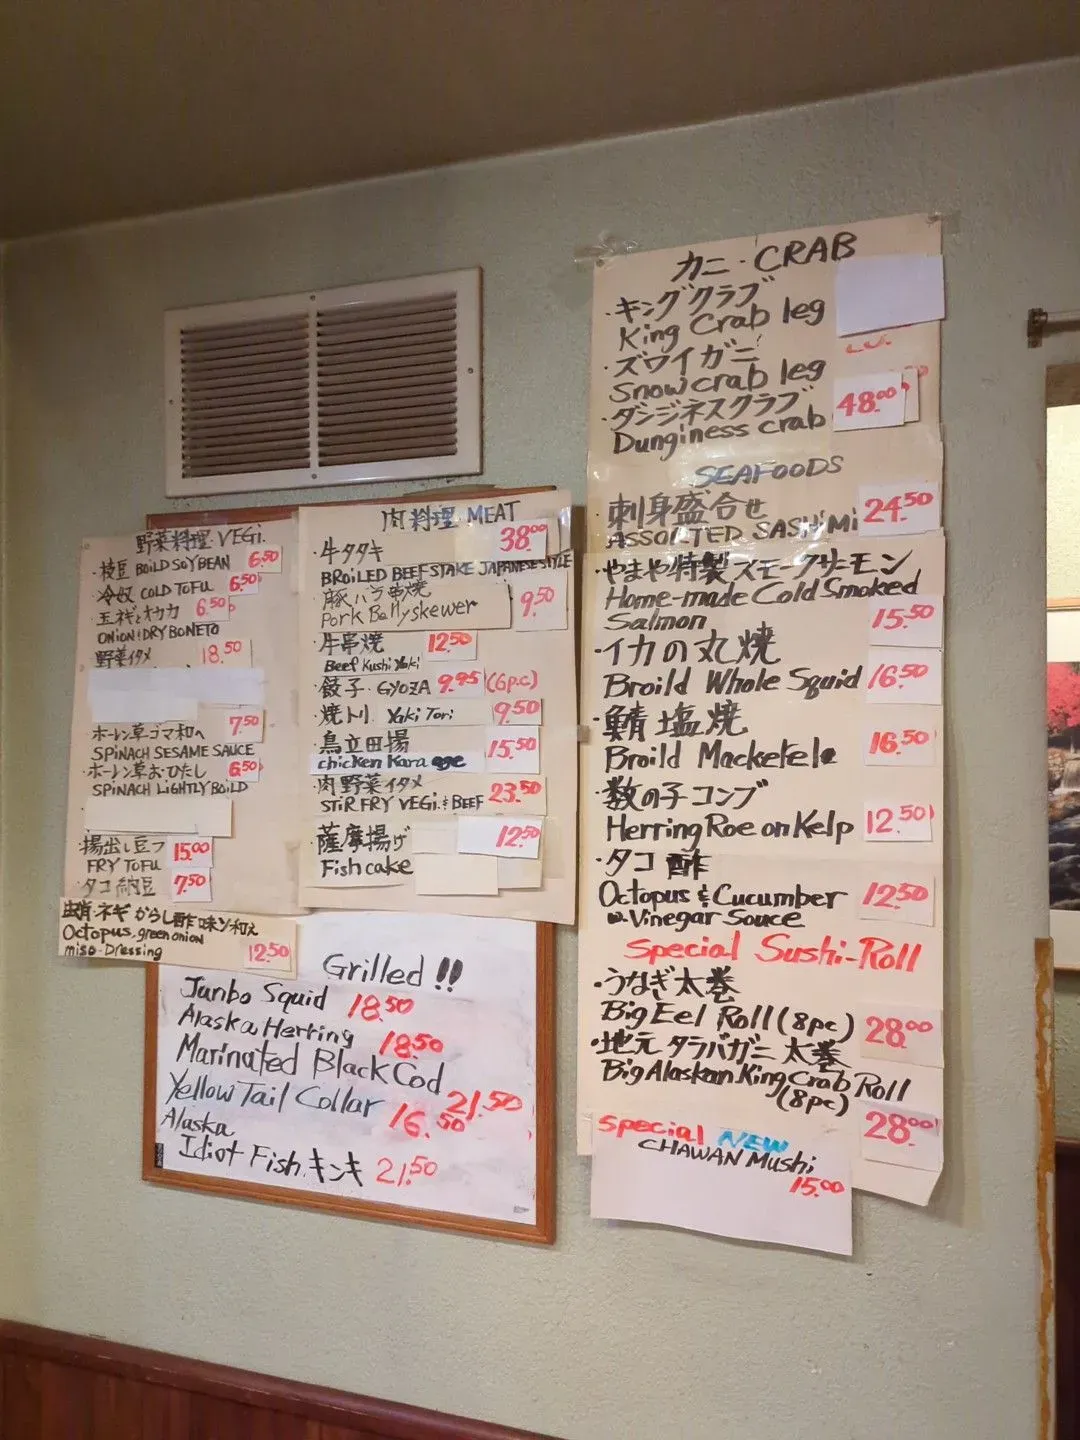 野菜料理 VEGi.
・枝豆 BOiLD SOYBEAN 6.50
・冷奴 COLD TOFU 6.50
・玉ネギとオカカ 6.50
ONION & DRY BONETO
野菜イタメ 18.50
・ホーレン草ゴマ和へ 7.50
SPiNACH SESAME SAUCE
・ホーレン草おひたし 6.50
SPiNACH LiGHTLY BOiLD
・揚出し豆フ 15.00
FRY TOFU
・タコ納豆 7.50
ネギからし酢味ソ和え
Octopus, green onion
miso-Dressing 12.50
肉料理 MEAT
・牛タタキ 38.00
BROiLED BEEFSTAKE JAPANESE STYLE
豚バラ串焼
Pork Bellyskewer 9.50
・牛串焼 12.50
Beef Kushi Yaki
・餃子・GYOZA 9.95 (6p.c)
・焼トリ Yaki Tori 9.50
・鳥立田揚 15.50
chicken Kara age
・肉野菜イタメ
STiR FRY VEGi. & BEEF 23.50
・薩摩揚げ 12.50
Fish cake
Grilled !!
Junbo Squid 18.50
Alaska Herring 18.50
Marinated Black Cod 21.50
Yellow Tail Collar 16.50
Alaska
Idiot Fish キンキ 21.50
カニ・CRAB
・キングクラブ
King Crab leg
・ズワイガニ
Snow crab leg
・ダンジネスクラブ 48.00
Dunginess crab
SEAFOODS
・刺身盛合せ 24.50
ASSORTED SASHiMi
・やまや特製スモークサーモン
Home-made Cold Smoked
Salmon 15.50
・イカの丸焼
Broild Whole Squid 16.50
・鯖塩焼
Broild Mackekele 16.50
・数の子コンブ
Herring Roe on Kelp 12.50
・タコ酢
Octopus & Cucumber 12.50
w. Vinegar Souce
Special Sushi-Roll
・うなぎ太巻
Big Eel Roll (8pc) 28.00
・地元タラバガニ太巻
Big Alaskan King Crab Roll
(8pc) 28.00
Special NEW
CHAWAN Mushi
15.00